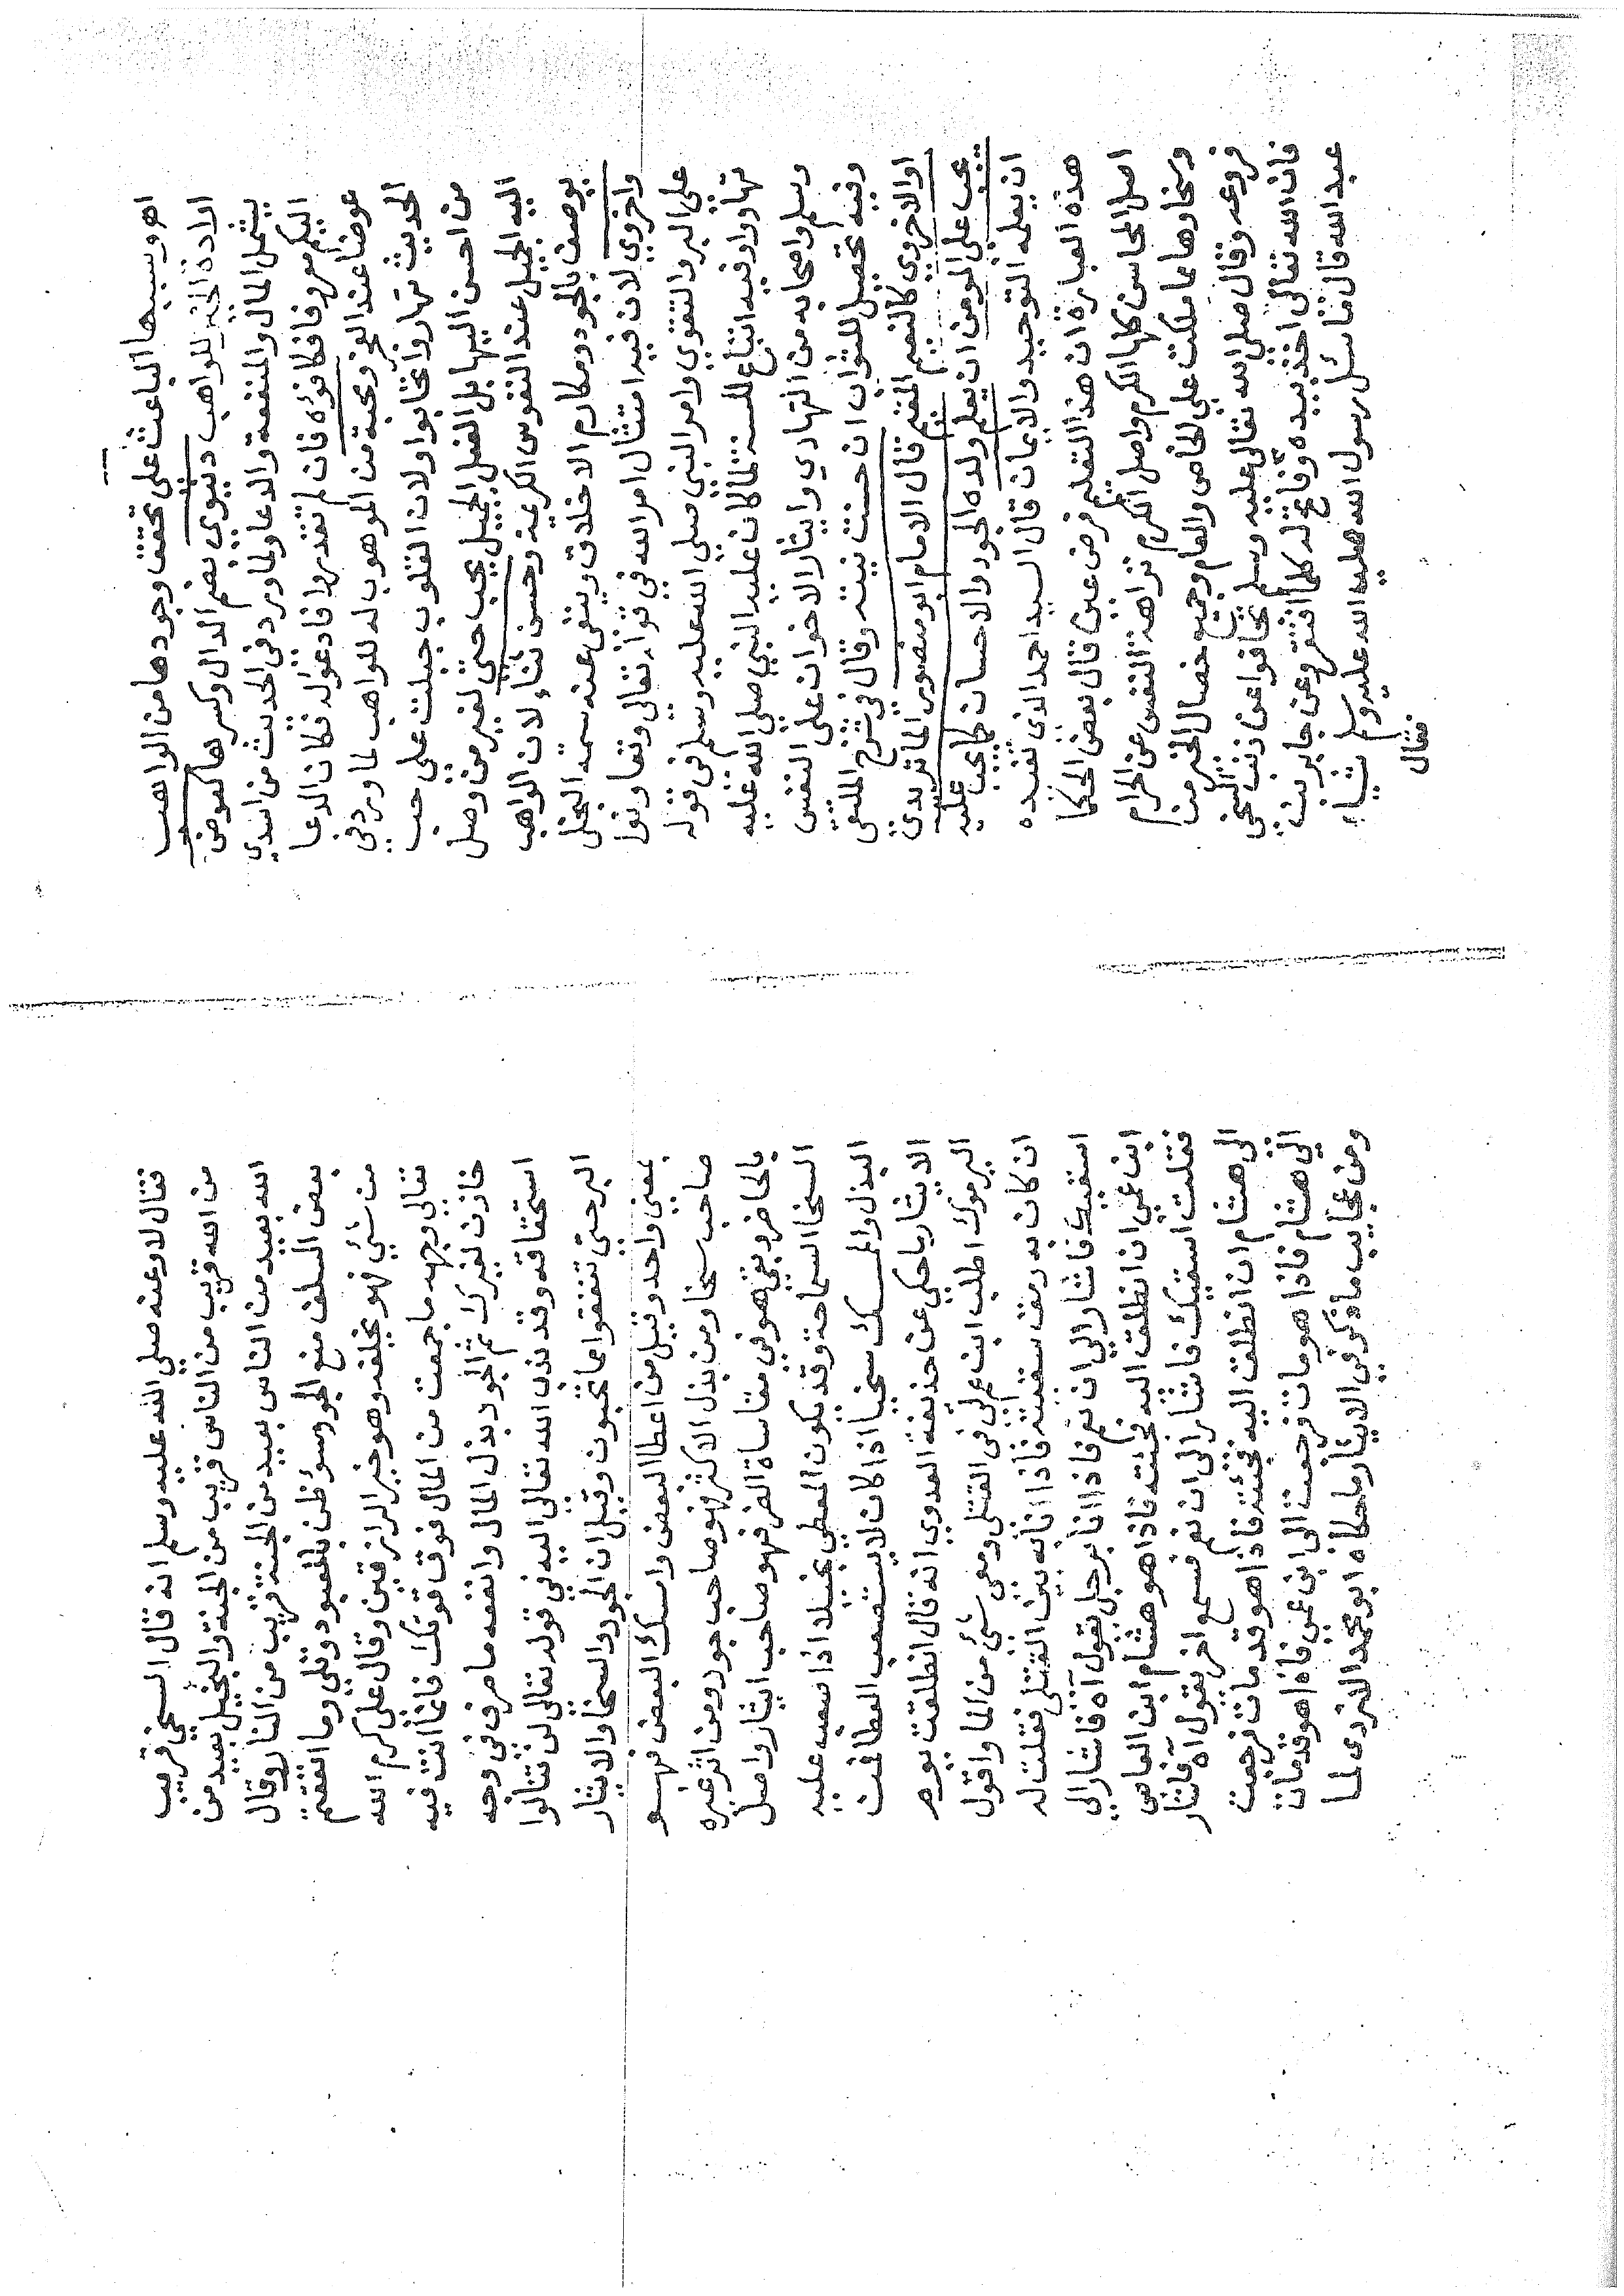 اهو وسببها الباعث على تحقق وجودها من الواهب
ارادة الخير للواهب دنيوى بضم الدال وكسرها كعوض
يشمل المال والمنفعة والدعا ولما ورد فى الحديث من اسدي
اليكم معروفا فكافوٌه فان لم تقدروا فادعوٌاله فكان الدعا
عوضا عند العجز ومحبة من الموهوب له للواهب لما ورد في
الحديث تهادوا تحابوا ولان القلوب جبلت على حب
من احسن اليها بل الفعل الجميل يحبب حتي لغير من وصل
اليه الجميل عند النفوس الكريمة وحسن ثناء لان الواهب
يوصف بالجود ومكارم الاخلاق وينتفى عنه سمة البخل
واخروي لان فيه امتثال امر الله في قوله تعالى وتعاونوا
على البر والتقوي ولامر النبي صلي الله عليه وسلم فى قوله
تهادوا وفيه اتباع للسنة لما كان عليه النبي صلي الله عليه
وسلم واصحابه من التهادي وايثار الاخوان على النفس
وفيه تحصيل للثواب ان حسنت نيته وقال في شرح الملتقى
او الاخروي كالنعيم المقيم قال الامام ابو منصور الماتريدى
يجب على المومن ان يعلم ولده الجود والاحسان كما يجب عليه
ان يعلمه التوحيد والايمان قال السيد احمد الذى تفيده
هذه العبارة ان هذا التعليم فرض عين قال بعض الحكما
اصل المحاسن كلها الكرم واصل الكرم نزاهة النفس عن الحرام
وسخاوها بما ملكت على الخاص والعام وجميع خصال الخير من
فروعه وقال صلى الله تعالى عليه وسلم تجافوا عن ذنب السخى
فان الله تعالى اخذ بيده وفاتح له كلما افتقر وعن جابر بن
عبد الله قال ما سئل رسول الله صلى الله عليه وسلم شياء
فقال
فقال لا وعنه صلي الله عليه وسلم انه قال السخي قريب
من الله قريب من الناس قريب من الجنة والبخيل بعيد من
الله بعيد من الناس بعيد من الجنة قريب من النار وقال
بعض السلف منع الجود سوٌ ظن بالمعبود وتلي وما انفقتم
من شيٌ فهو يخلفه وهو خير الرازقين وقال على كرم الله
تعالى وجهه ما جمعت من المال فوق قوتك فانما انت فيه
خازن لغيرك ثم الجود بذل المال وانفعه ما صرف فى وجه
استحقاقه وقد ندب الله تعالي اليه في قوله تعالى لن تنالوا
البر حتي تنفقوا مما تحبون وقيل ان الجود والسخا والايثار
بمعنى واحد وقيل من اعطا البعض وامسك البعض فهو
صاحب سخا ومن بذل الاكثر فهو صاحب جود ومن اثر غيره
بالحاضر وبقي هو في مقاساة الضر فهو صاحب ايثار واصل
السخا السماحة وقد يكون المعطي بخيلا اذا صعب عليه
البذل والممسك سخيا اذا كان لا يستصعب العطا فمن
الايثار ما حكي عن حذيفة العدوي انه قال انطلقت يوم
اليرموك اطلب ابن عم لى فى القتلى ومعى شيٌ من الما واقول
ان كان به رمق سقيته فاذا انا به بين القتلى فقلت له
اسقيك فاشار الي ان نعم فاذا انا برجل يقول آه فاشار الي
ابن عمي ان انطلق اليه فجئته فاذا هو هشام ابن العاصى
فقلت اسقيك فاشار الى ان نعم فسمع اخر يقول آه فاشار
الى هشام ان انطلق اليه فجئته فاذا هو قد مات فرجعت
الي هشام فاذا هو مات فرجعت الى ابن عمى فاذا هو قد مات
ومن عجايب ما ذكر في الايثار ما حكاه ابو محمد الازدى لما